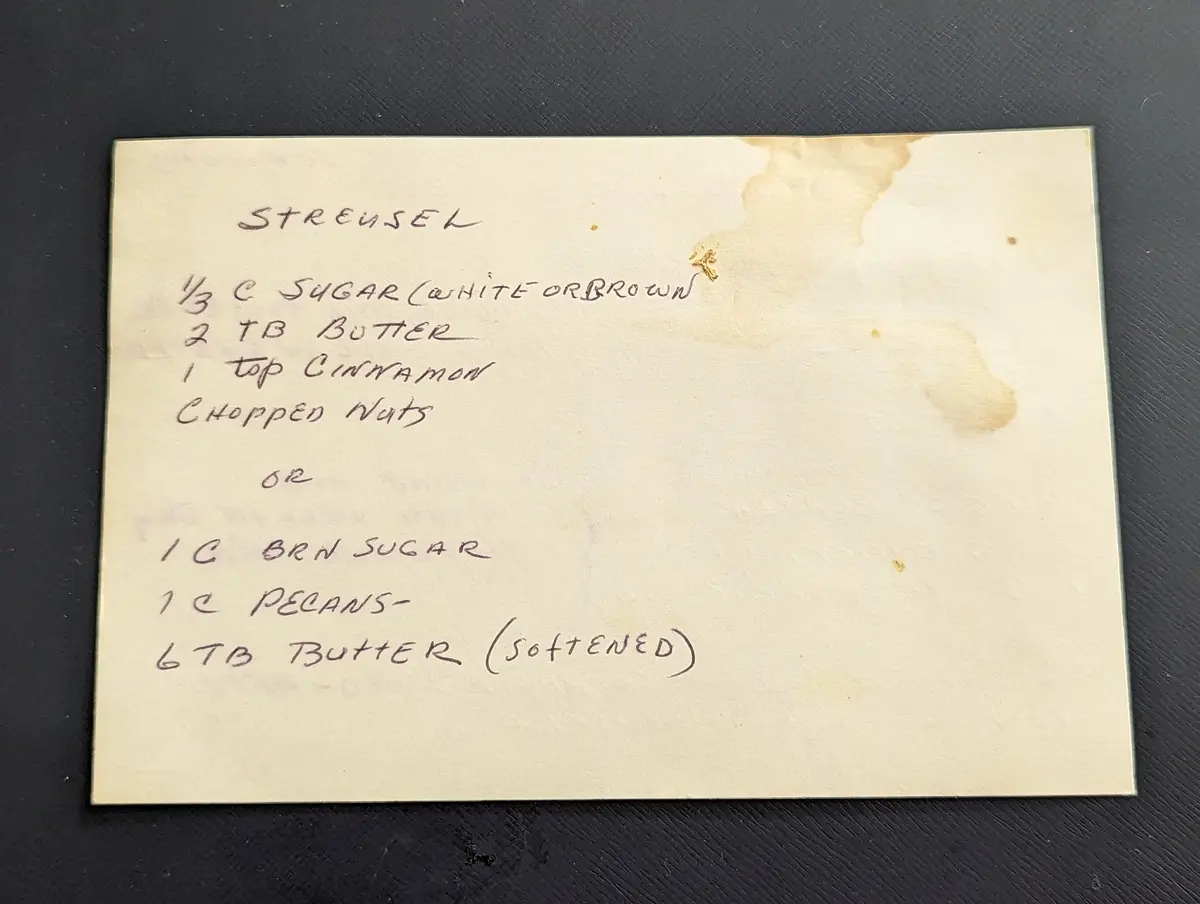 STREUSEL
1/3 C SUGAR (WHITE OR BROWN
2 TB BUTTER
1 tsp CINNAMON
CHOPPED NUTS
OR
1 C BRN SUGAR
1 C PECANS-
6 TB BUTTER (SOFTENED)